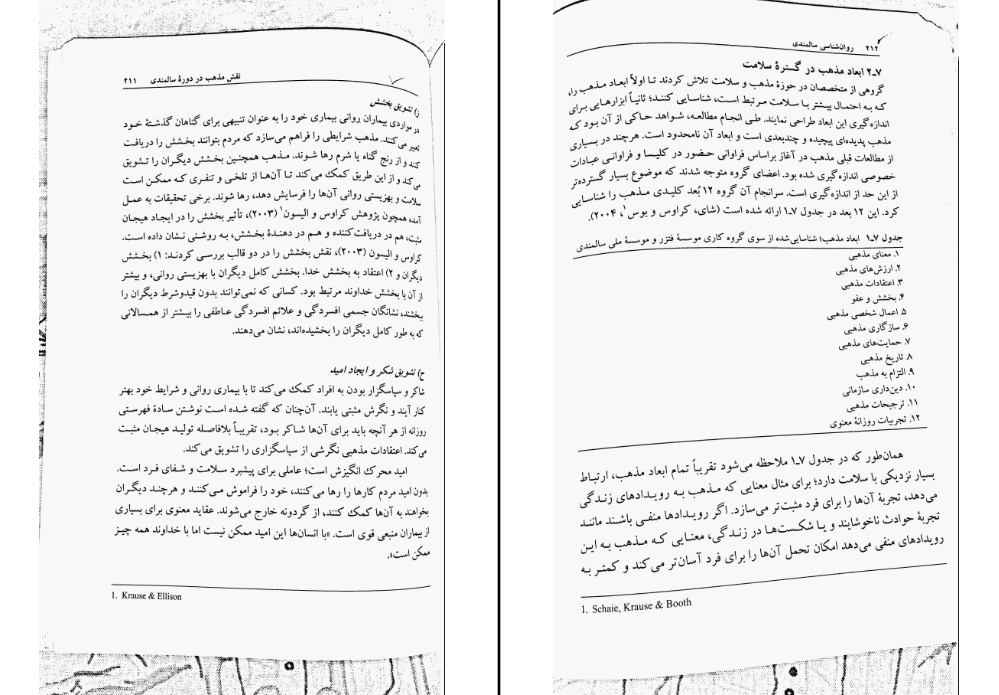 نقش مذهب در دورهٔ سالمندی ۲۱۱
ز) تشویق بخشش
در مواردی بیماران روانی بیماری خود را به عنوان تنبیهی برای گناهان گذشتهٔ خود
تعبیر می‌کنند. مذهب شرایطی را فراهم می‌سازد که مردم بتوانند بخشش را دریافت
کند و از رنج گناه یا شرم رها شوند. مذهب همچنین بخشش دیگران را تشویق
می‌کند و از این طریق کمک می‌کند تا آن‌ها از تلخی و تنفری که ممکن است
سلامت و بهزیستی روانی آن‌ها را فرسایش دهد، رها شوند. برخی تحقیقات به عمل
آمده همچون پژوهش کراوس و الیسون۱ (۲۰۰۳)، تأثیر بخشش را در ایجاد هیجان
مثبت، هم در دریافت‌کننده و هم در دهندهٔ بخشش، به روشنی نشان داده است.
کراوس و الیسون (۲۰۰۳)، نقش بخشش را در دو قالب بررسی کردند: ۱) بخشش
دیگران و ۲) اعتقاد به بخشش خدا. بخشش کامل دیگران با بهزیستی روانی، و بیشتر
از آن با بخشش خداوند مرتبط بود. کسانی که نمی‌توانند بدون قیدوشرط دیگران را
بخشند، نشانگان جسمی افسردگی و علائم افسردگی عاطفی را بیشتر از همسالانی
که به طور کامل دیگران را بخشیده‌اند، نشان می‌دهند.
ح) تشویق شکر و ایجاد امید
شاکر و سپاسگزار بودن به افراد کمک می‌کند تا با بیماری روانی و شرایط خود بهتر
کار آیند و نگرش مثبتی یابند. آن‌چنان که گفته شده است نوشتن سادهٔ فهرستی
روزانه از هر آنچه باید برای آن‌ها شاکر بود، تقریباً بلافاصله تولید هیجان مثبت
می‌کند. اعتقادات مذهبی نگرشی از سپاسگزاری را تشویق می‌کند.
امید محرک انگیزش است؛ عاملی برای پیشبرد سلامت و شفای فرد است.
بدون امید مردم کارها را رها می‌کنند، خود را فراموش می‌کنند و هرچند دیگران
بخواهند به آن‌ها کمک کنند، از گردونه خارج می‌شوند. عقاید معنوی برای بسیاری
از بیماران منبعی قوی است. «با انسان‌ها این امید ممکن نیست اما با خداوند همه چیز
ممکن است».
1. Krause & Ellison
۲۱۲ روان‌شناسی سالمندی
۲ـ۷ ابعاد مذهب در گسترهٔ سلامت
گروهی از متخصصان در حوزهٔ مذهب و سلامت تلاش کردند تا اولاً ابعاد مذهب را،
که به احتمال بیشتر با سلامت مرتبط است، شناسایی کنند؛ ثانیاً ابزارهایی برای
اندازه‌گیری این ابعاد طراحی نمایند. طی انجام مطالعه، شواهد حاکی از آن بود که
مذهب پدیده‌ای پیچیده و چندبعدی است و ابعاد آن نامحدود است. هرچند در بسیاری
از مطالعات قبلی مذهب در آغاز براساس فراوانی حضور در کلیسا و فراوانی عبادات
خصوصی اندازه‌گیری شده بود. اعضای گروه متوجه شدند که موضوع بسیار گسترده‌تر
از این حد از اندازه‌گیری است. سرانجام آن گروه ۱۲ بُعد کلیدی مذهب را شناسایی
کرد. این ۱۲ بعد در جدول ۱ـ۷ ارائه شده است (شای، کراوس و بوس۱، ۲۰۰۴).
جدول ۱ـ۷ ابعاد مذهب؛ شناسایی‌شده از سوی گروه کاری موسسهٔ فتزر و موسسهٔ ملی سالمندی
۱. معنای مذهبی
۲. ارزش‌های مذهبی
۳. اعتقادات مذهبی
۴. بخشش و عفو
۵. اعمال شخصی مذهبی
۶. سازگاری مذهبی
۷. حمایت‌های مذهبی
۸. تاریخ مذهبی
۹. التزام به مذهب
۱۰. دین‌داری سازمانی
۱۱. ترجیحات مذهبی
۱۲. تجربیات روزانهٔ معنوی
همان‌طور که در جدول ۱ـ۷ ملاحظه می‌شود تقریباً تمام ابعاد مذهب، ارتباط
بسیار نزدیکی با سلامت دارد؛ برای مثال معنایی که مذهب به رویدادهای زندگی
می‌دهد، تجربهٔ آن‌ها را برای فرد مثبت‌تر می‌سازد. اگر رویدادها منفی باشند مانند
تجربهٔ حوادث ناخوشایند و یا شکست‌ها در زندگی، معنایی که مذهب به این
رویدادهای منفی می‌دهد امکان تحمل آن‌ها را برای فرد آسان‌تر می‌کند و کمتر به
1. Schaie, Krause & Booth